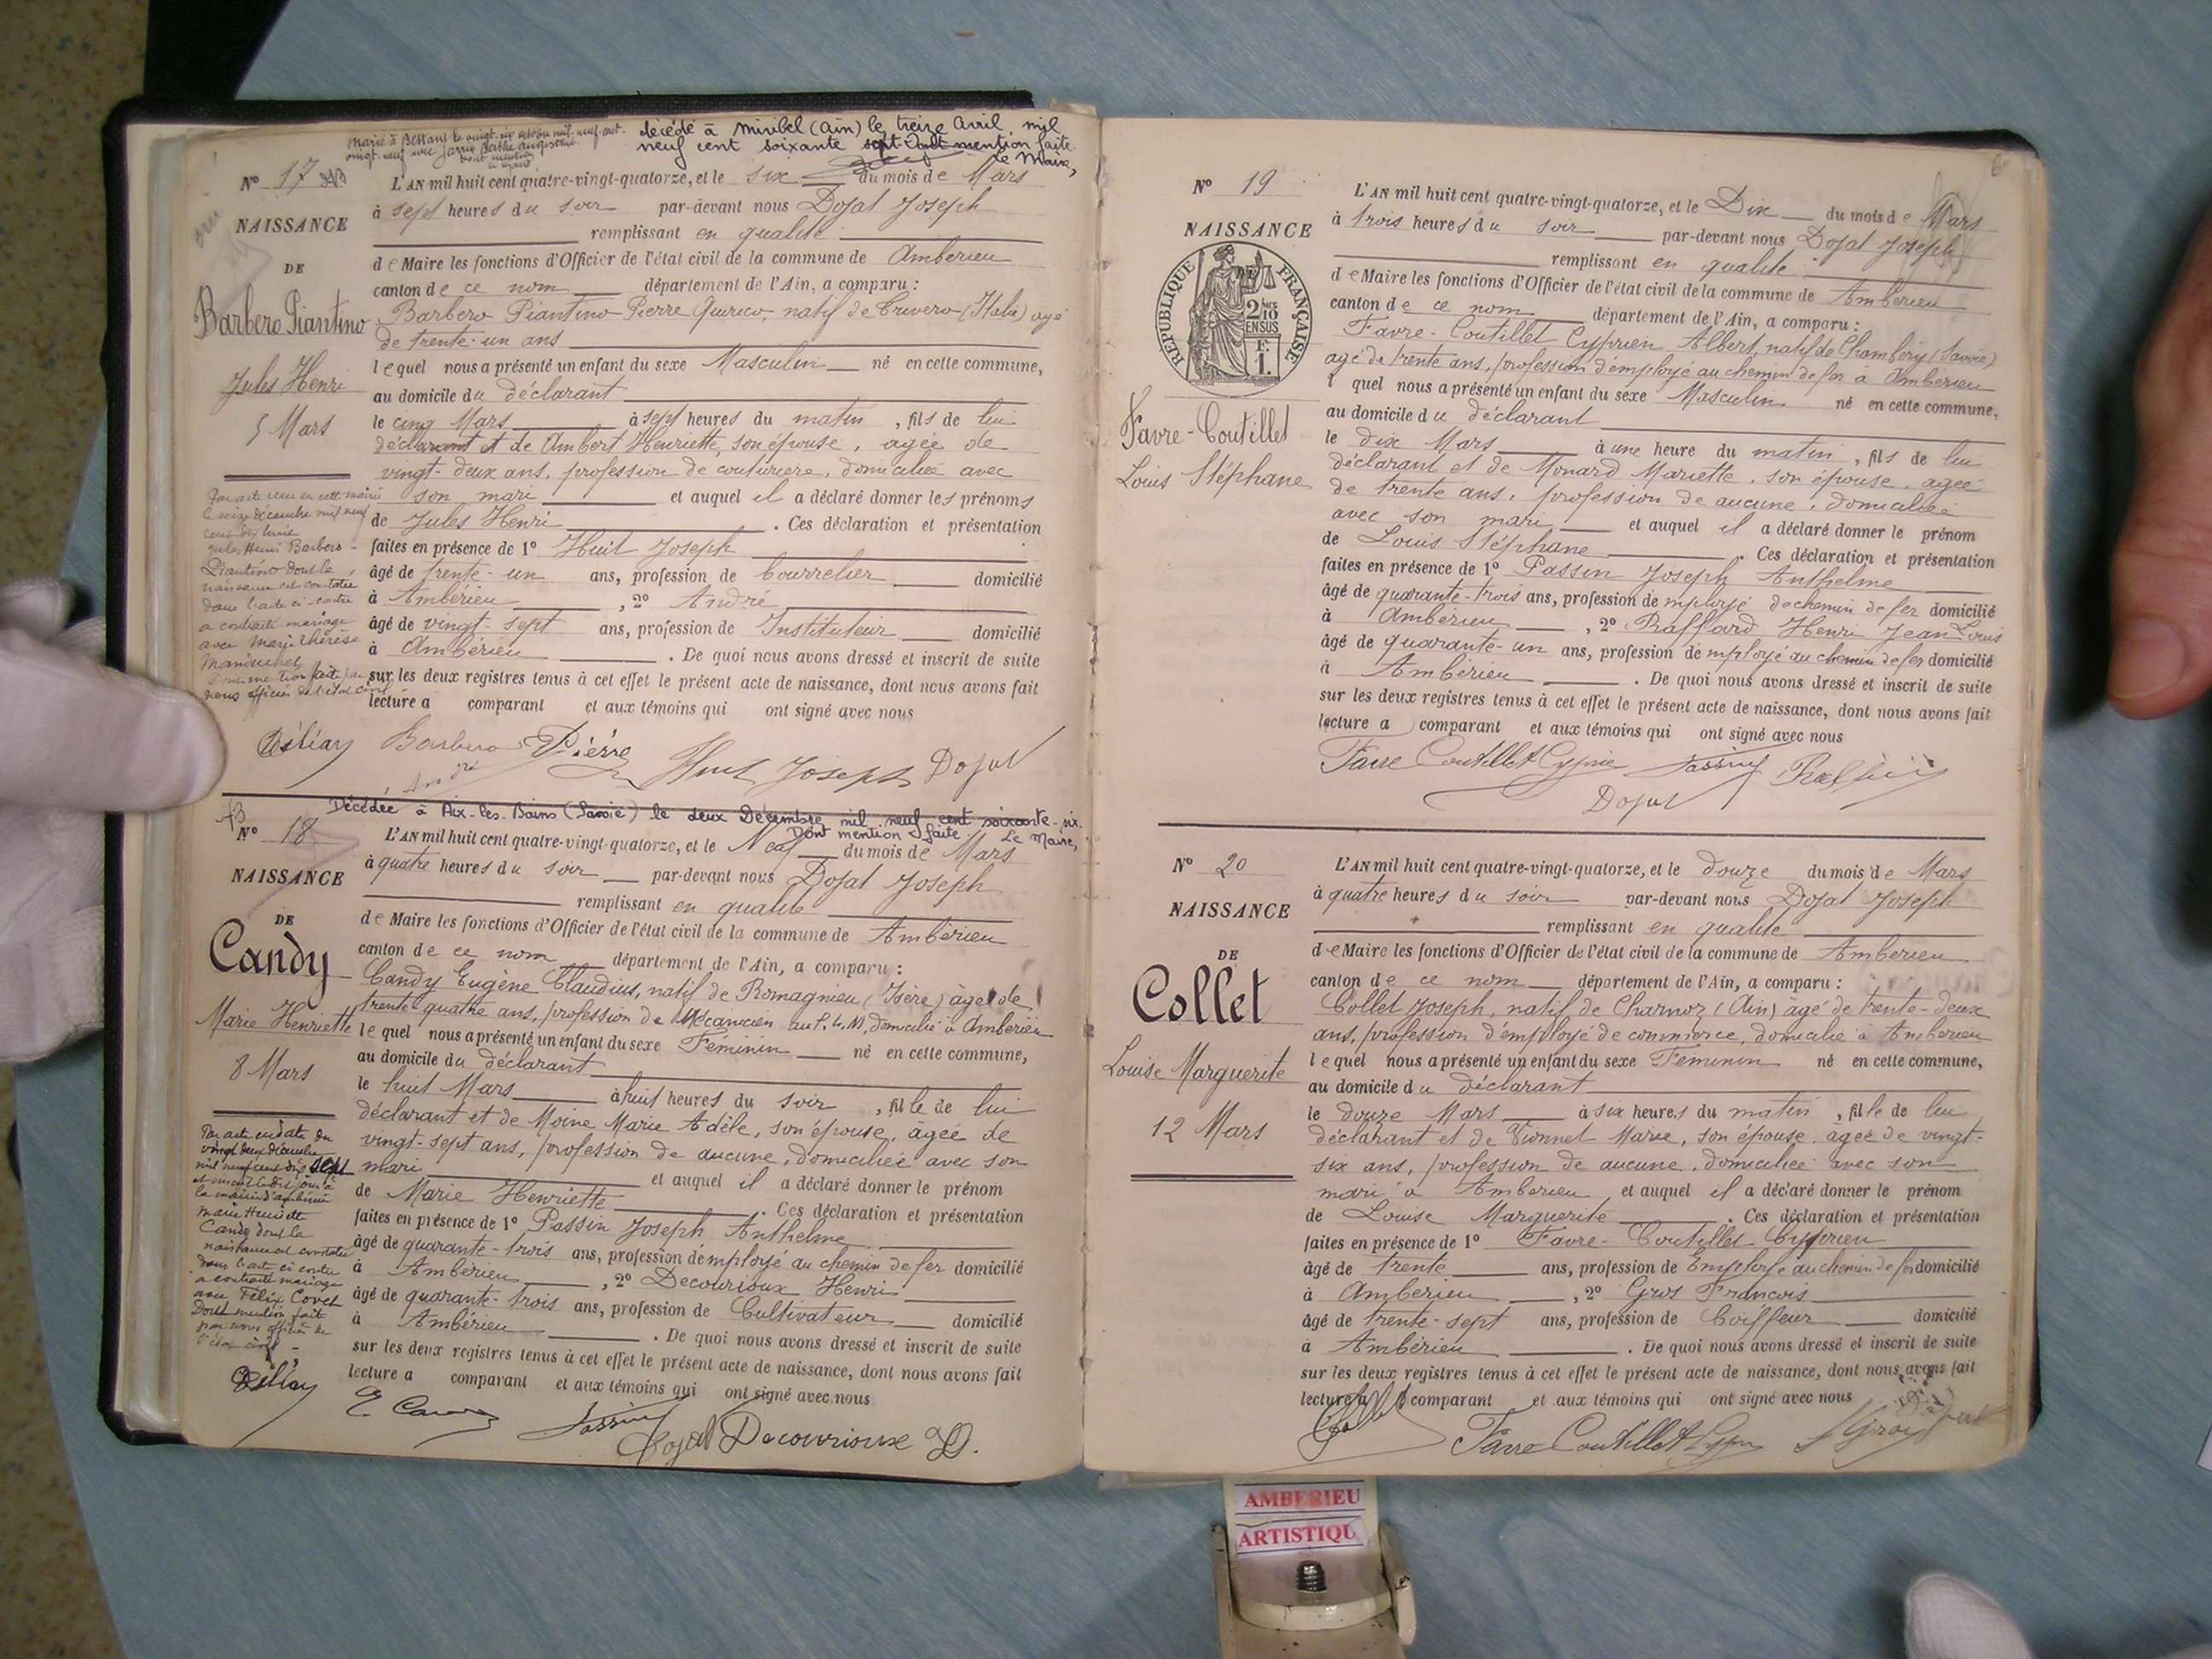 décédé à Miribel (Ain) le treize Avril mil
neuf cent soixante sept Dont mention faite
Le Maire,
N° 17
NAISSANCE
DE
Barbero Piantino
Jules Henri
5 Mars
L'AN mil huit cent quatre-vingt-quatorze, et le six du mois de Mars
à sept heures du soir par-devant nous Dojat Joseph
remplissant en qualité
de Maire les fonctions d'Officier de l'état civil de la commune de Ambérieu
canton de ce nom département de l'Ain, a comparu :
Barbero Piantino Pierre Quirico, natif de Trivero (Italie) agé
de trente-un ans
lequel nous a présenté un enfant du sexe Masculin né en cette commune,
au domicile du déclarant
le cinq Mars à sept heures du matin, fils de lui
déclarant et de Ambert Henriette, son épouse, agée de
vingt-deux ans, profession de couturière, domiciliée avec
son mari et auquel il a déclaré donner les prénoms
de Jules Henri . Ces déclaration et présentation
faites en présence de 1° Huit Joseph
âgé de trente-un ans, profession de bourrelier domicilié
à Ambérieu , 2° André
âgé de vingt-sept ans, profession de Instituteur domicilié
à Ambérieu . De quoi nous avons dressé et inscrit de suite
sur les deux registres tenus à cet effet le présent acte de naissance, dont nous avons fait
lecture a comparant et aux témoins qui ont signé avec nous
Par acte reçu en cette mairie
le seize décembre mil neuf
Jules Henri Barbero-
Piantino dont la
naissance est constatée
dans l'acte ci-contre
a contracté mariage
avec Marie Thérèse
Dont mention faite par
nous officier de l'état civil
Barbero Pierre Huit Joseph Dojat
André
Décédée à Aix-les-Bains (Savoie) le deux Décembre mil neuf cent soixante-six.
Dont mention faite. Le Maire,
N° 18
NAISSANCE
DE
Candy
Marie Henriette
8 Mars
L'AN mil huit cent quatre-vingt-quatorze, et le Neuf du mois de Mars
à quatre heures du soir par-devant nous Dojat Joseph
remplissant en qualité
de Maire les fonctions d'Officier de l'état civil de la commune de Ambérieu
canton de ce nom département de l'Ain, a comparu :
Candy Eugène Claudius, natif de Romagnieu (Isère) âgé de
trente quatre ans, profession de Mécanicien au P.L.M, domicilié à Ambérieu
lequel nous a présenté un enfant du sexe Féminin né en cette commune,
au domicile du déclarant
le huit Mars à huit heures du soir, fille de lui
déclarant et de Moine Marie Adèle, son épouse, âgée de
vingt-sept ans, profession de aucune, domiciliée avec son
mari et auquel il a déclaré donner le prénom
de Marie Henriette . Ces déclaration et présentation
faites en présence de 1° Passin Joseph Anthelme
âgé de quarante-trois ans, profession d'employé au chemin de fer domicilié
à Ambérieu , 2° Decourioux Henri
âgé de quarante-trois ans, profession de Cultivateur domicilié
à Ambérieu . De quoi nous avons dressé et inscrit de suite
sur les deux registres tenus à cet effet le présent acte de naissance, dont nous avons fait
lecture a comparant et aux témoins qui ont signé avec nous
Par acte en date du
vingt deux décembre
mil neuf cent dix sept
la mairie d'Ambérieu
Marie Henriette
Candy dont la
naissance est constatée
dans l'acte ci contre
a contracté mariage
avec Félix Covet
Dont mention faite
par nous officier de
l'état civil
Passin
Dojat Decourioux
N° 19
NAISSANCE
RÉPUBLIQUE FRANÇAISE
2/10 EN SUS
Favre-Coutillet
Louis Stéphane
L'AN mil huit cent quatre-vingt-quatorze, et le Dix du mois de Mars
à trois heures du soir par-devant nous Dojat Joseph
remplissant en qualité
de Maire les fonctions d'Officier de l'état civil de la commune de Ambérieu
canton de ce nom département de l'Ain, a comparu :
Favre-Coutillet Cyprien Albert, natif de Chambéry (Savoie)
agé de trente ans, profession d'employé au chemin de fer à Ambérieu
l quel nous a présenté un enfant du sexe Masculin né en cette commune,
au domicile du déclarant
le dix Mars à une heure du matin, fils de lui
déclarant et de Monard Mariette, son épouse, agée
de trente ans, profession de aucune, domiciliée
avec son mari et auquel il a déclaré donner le prénom
de Louis Stéphane . Ces déclaration et présentation
faites en présence de 1° Passin Joseph Anthelme
âgé de quarante-trois ans, profession de mployé de chemin de fer domicilié
à Ambérieu , 2° Raffard Henri Jean Louis
âgé de quarante-un ans, profession de mployé au chemin de fer domicilié
à Ambérieu . De quoi nous avons dressé et inscrit de suite
sur les deux registres tenus à cet effet le présent acte de naissance, dont nous avons fait
lecture a comparant et aux témoins qui ont signé avec nous
Favre Coutillet Passin
Dojat
N° 20
NAISSANCE
DE
Collet
Louise Marguerite
12 Mars
L'AN mil huit cent quatre-vingt-quatorze, et le douze du mois de Mars
à quatre heures du soir par-devant nous Dojat Joseph
remplissant en qualité
de Maire les fonctions d'Officier de l'état civil de la commune de Ambérieu
canton de ce nom département de l'Ain, a comparu :
Collet Joseph, natif de Charnoz (Ain) âgé de trente-deux
ans, profession d'employé de commerce, domicilié à Ambérieu
lequel nous a présenté un enfant du sexe Féminin né en cette commune,
au domicile du déclarant
le douze Mars à six heures du matin, fille de lui
déclarant et de Vionnet Marie, son épouse, âgée de vingt-
six ans, profession de aucune, domiciliée avec son
mari à Ambérieu et auquel il a déclaré donner le prénom
de Louise Marguerite . Ces déclaration et présentation
faites en présence de 1° Favre-Coutillet Cyprien
âgé de trente ans, profession de Employé au chemin de fer domicilié
à Ambérieu , 2° Gros François
âgé de trente-sept ans, profession de Coiffeur domicilié
à Ambérieu . De quoi nous avons dressé et inscrit de suite
sur les deux registres tenus à cet effet le présent acte de naissance, dont nous avons fait
lecture a comparant et aux témoins qui ont signé avec nous
Favre Coutillet
AMBERIEU
ARTISTIQU